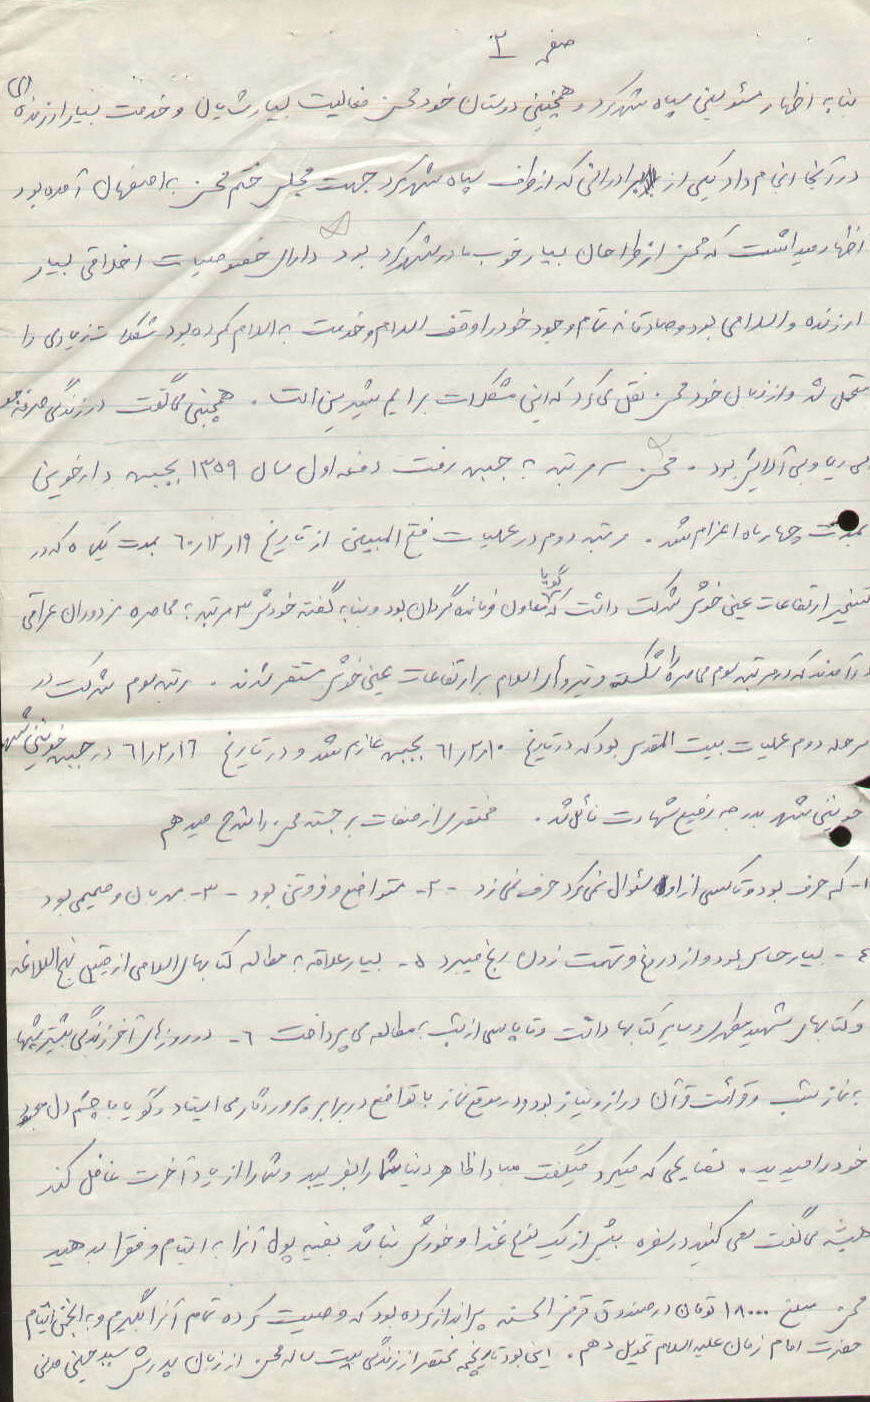 صفحه ۳
بنا به اظهار مسئولین سپاه شهرکرد و همچنین دوستان خود محسن فعالیت بسیار شایان و خدمت بسیار ارزنده
در آنجا انجام داد یکی از برادرانی که از طرف سپاه شهرکرد جهت مجلس ختم محسن به اصفهان آمده بود
اظهار میداشت که محسن از طراحان بسیار خوب ما در شهرکرد بود دارای خصوصیات اخلاقی بسیار
ارزنده و اسلامی بود و صادقانه تمام وجود خود را وقف اسلام و خدمت به اسلام کرده بود مشکلات زیادی را
متحمل شد و از زبان خود محسن نقل می‌کرد که این مشکلات برایم شیرین است . همچنین می‌گفت در زندگی صرفه جو
بی ریا و بی آلایش بود . محسن سه مرتبه به جبهه رفت دفعه اول سال ۱۳۵۹ بجبهه دارخوین
بمدت چهار ماه اعزام شد . مرتبه دوم در عملیات فتح المبین از تاریخ ۶۰٫۱۲٫۱۹ بمدت یکماه که در
تسخیر ارتفاعات عین خوش شرکت داشت که گویا معاون فرمانده گردان بود و بنا به گفته خودش ۳ مرتبه به محاصره مزدوران عراقی
درآمدند که در مرتبه سوم محاصره را شکسته و نیروهای اسلام بر ارتفاعات عین خوش مستقر شدند . مرتبه سوم شرکت در
مرحله دوم عملیات بیت المقدس بود که در تاریخ ۶۱٫۲٫۱۰ بجبهه عازم شد و در تاریخ ۶۱٫۲٫۱۶ در جبهه خونین شهر
خونین شهر بدرجه رفیع شهادت نائل شد . مختصری از صفات برجسته محسن را شرح میدهم
۱- کم حرف بود و تا کسی از او سئوال نمی‌کرد حرف نمی‌زد -۲- متواضع و فروتن بود -۳- مهربان و صمیمی بود
۴- بسیار حساس بود و از دروغ و تهمت زدن رنج میبرد ۵- بسیار علاقه به مطالعه کتابهای اسلامی از قبیل نهج البلاغه
و کتابهای شهید مطهری و سایر کتابها داشت و تا پاسی از شب به مطالعه می‌پرداخت ۶- در روزهای آخر زندگی بیشتر شبها
به نماز شب و قرائت قرآن و راز و نیاز بود و در موقع نماز با تواضع در برابر پروردگار می ایستاد و گویا با چشم دل معبود
خود را میدید . نصایحی که میکرد میگفت مبادا ظاهر دنیا شما را بفریبد و شما را از یاد آخرت غافل کند
همیشه می‌گفت سعی کنید در سفره بیش از یک نوع غذا و خورش نباشد بقیه پول آنرا به ایتام و فقرا بدهید
محسن مبلغ ۱۸۰۰۰ تومان در صندوق قرض الحسنه پس‌انداز کرده بود که وصیت کرده تمام آنرا بگیرم و به انجمن ایتام
حضرت امام زمان علیه السلام تحویل دهم . این بود تاریخچه مختصر از زندگی بیست ساله محسن از زبان پدرش سید حسین مدنی